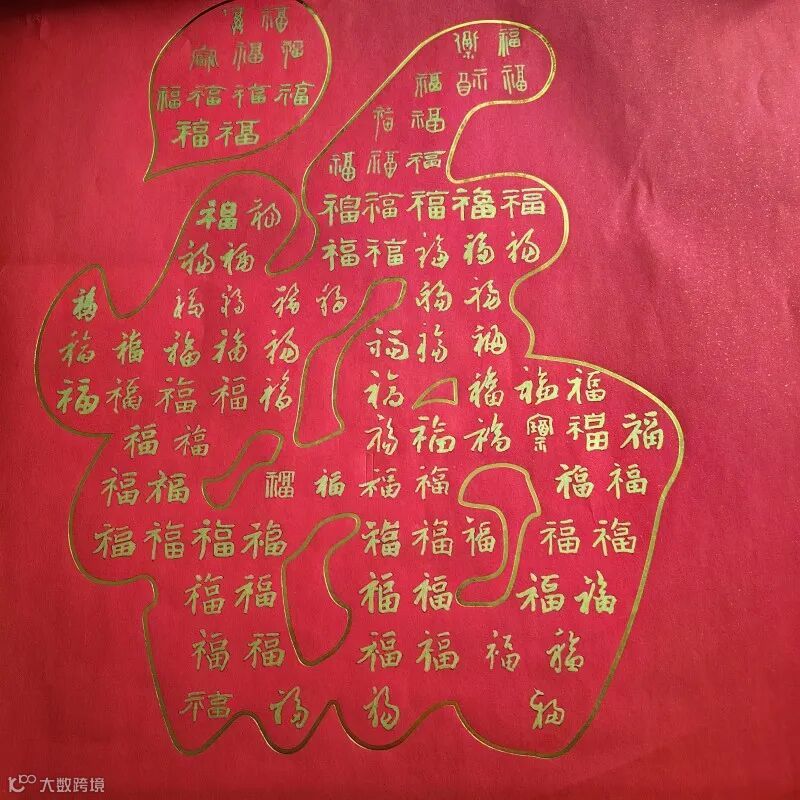 福福
福福福
福福福福
福福
福福
福福福
福福
福福福
福福福福福福福
福福福福福福福
福福福福福福福
福福福福福福福福
福福福福福福福福福
福福福福福福福福
福福福福福福福福
福福福福福福福福福
福福福福福福
福福福福福福
福福福福
大数跨境